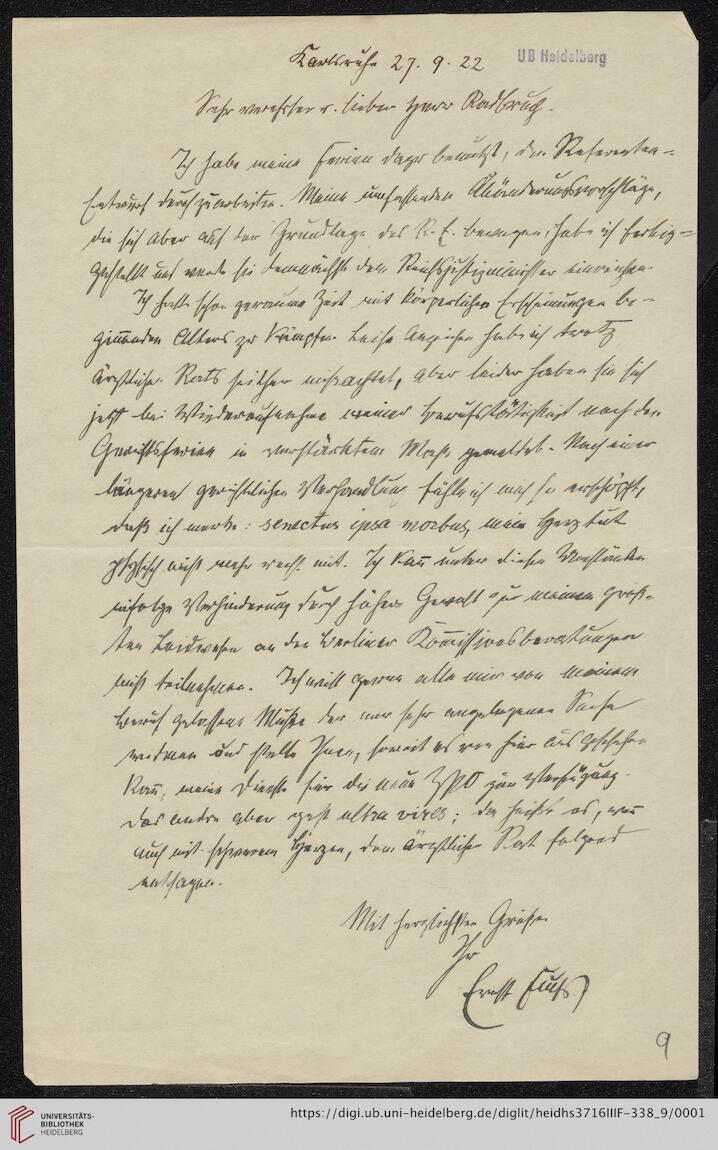 Karlsruhe 27. 9. 22
UB Heidelberg
Sehr verehrter u. lieber Herr Radbruch.
Ich habe meine Ferien dazu benutzt, den Referenten-
Entwurf durchzuarbeiten. Meine umfassenden Abänderungsvorschläge,
die sich aber auf der Grundlage des R.E. bewegen, habe ich fertig-
gestellt und werde sie demnächst dem Reichsjustizminister einreichen.
Ich hatte schon geraume Zeit mit körperlichen Erscheinungen be-
ginnenden Alters zu kämpfen. Leise Anzeichen habe ich trotz
ärztlichen Rats seither missachtet, aber leider haben sie sich
jetzt bei Wiederaufnahme meiner Berufstätigkeit nach den
Gerichtsferien in verstärktem Maße gemeldet. Nach einer
längeren gerichtlichen Verhandlung fühle ich mich so erschöpft,
daß ich merke: senectus ipsa morbus, mein Herz tut
physisch nicht mehr recht mit. Ich kann unter diesen Umständen
infolge Verhinderung durch höhere Gewalt zu meinem größ-
ten Leidwesen an den Berliner Kommissionsberatungen
nicht teilnehmen. Ich will gerne alle mir von meinem
Beruf gelassene Muße der mir sehr angelegenen Sache
widmen und stelle Ihnen, soweit es von hier aus geschehen
kann, meine Dienste für die neue ZPO zur Verfügung.
Das andre aber geht ultra vires; da heißt es, wenn
auch mit schwerem Herzen, dem ärztlichen Rat folgend
entsagen.
Mit herzlichsten Grüßen
Ihr
Ernst Fuchs
9
UNIVERSITÄTS-
BIBLIOTHEK
HEIDELBERG
https://digi.ub.uni-heidelberg.de/diglit/heidhs3716IIIF-338_9/0001